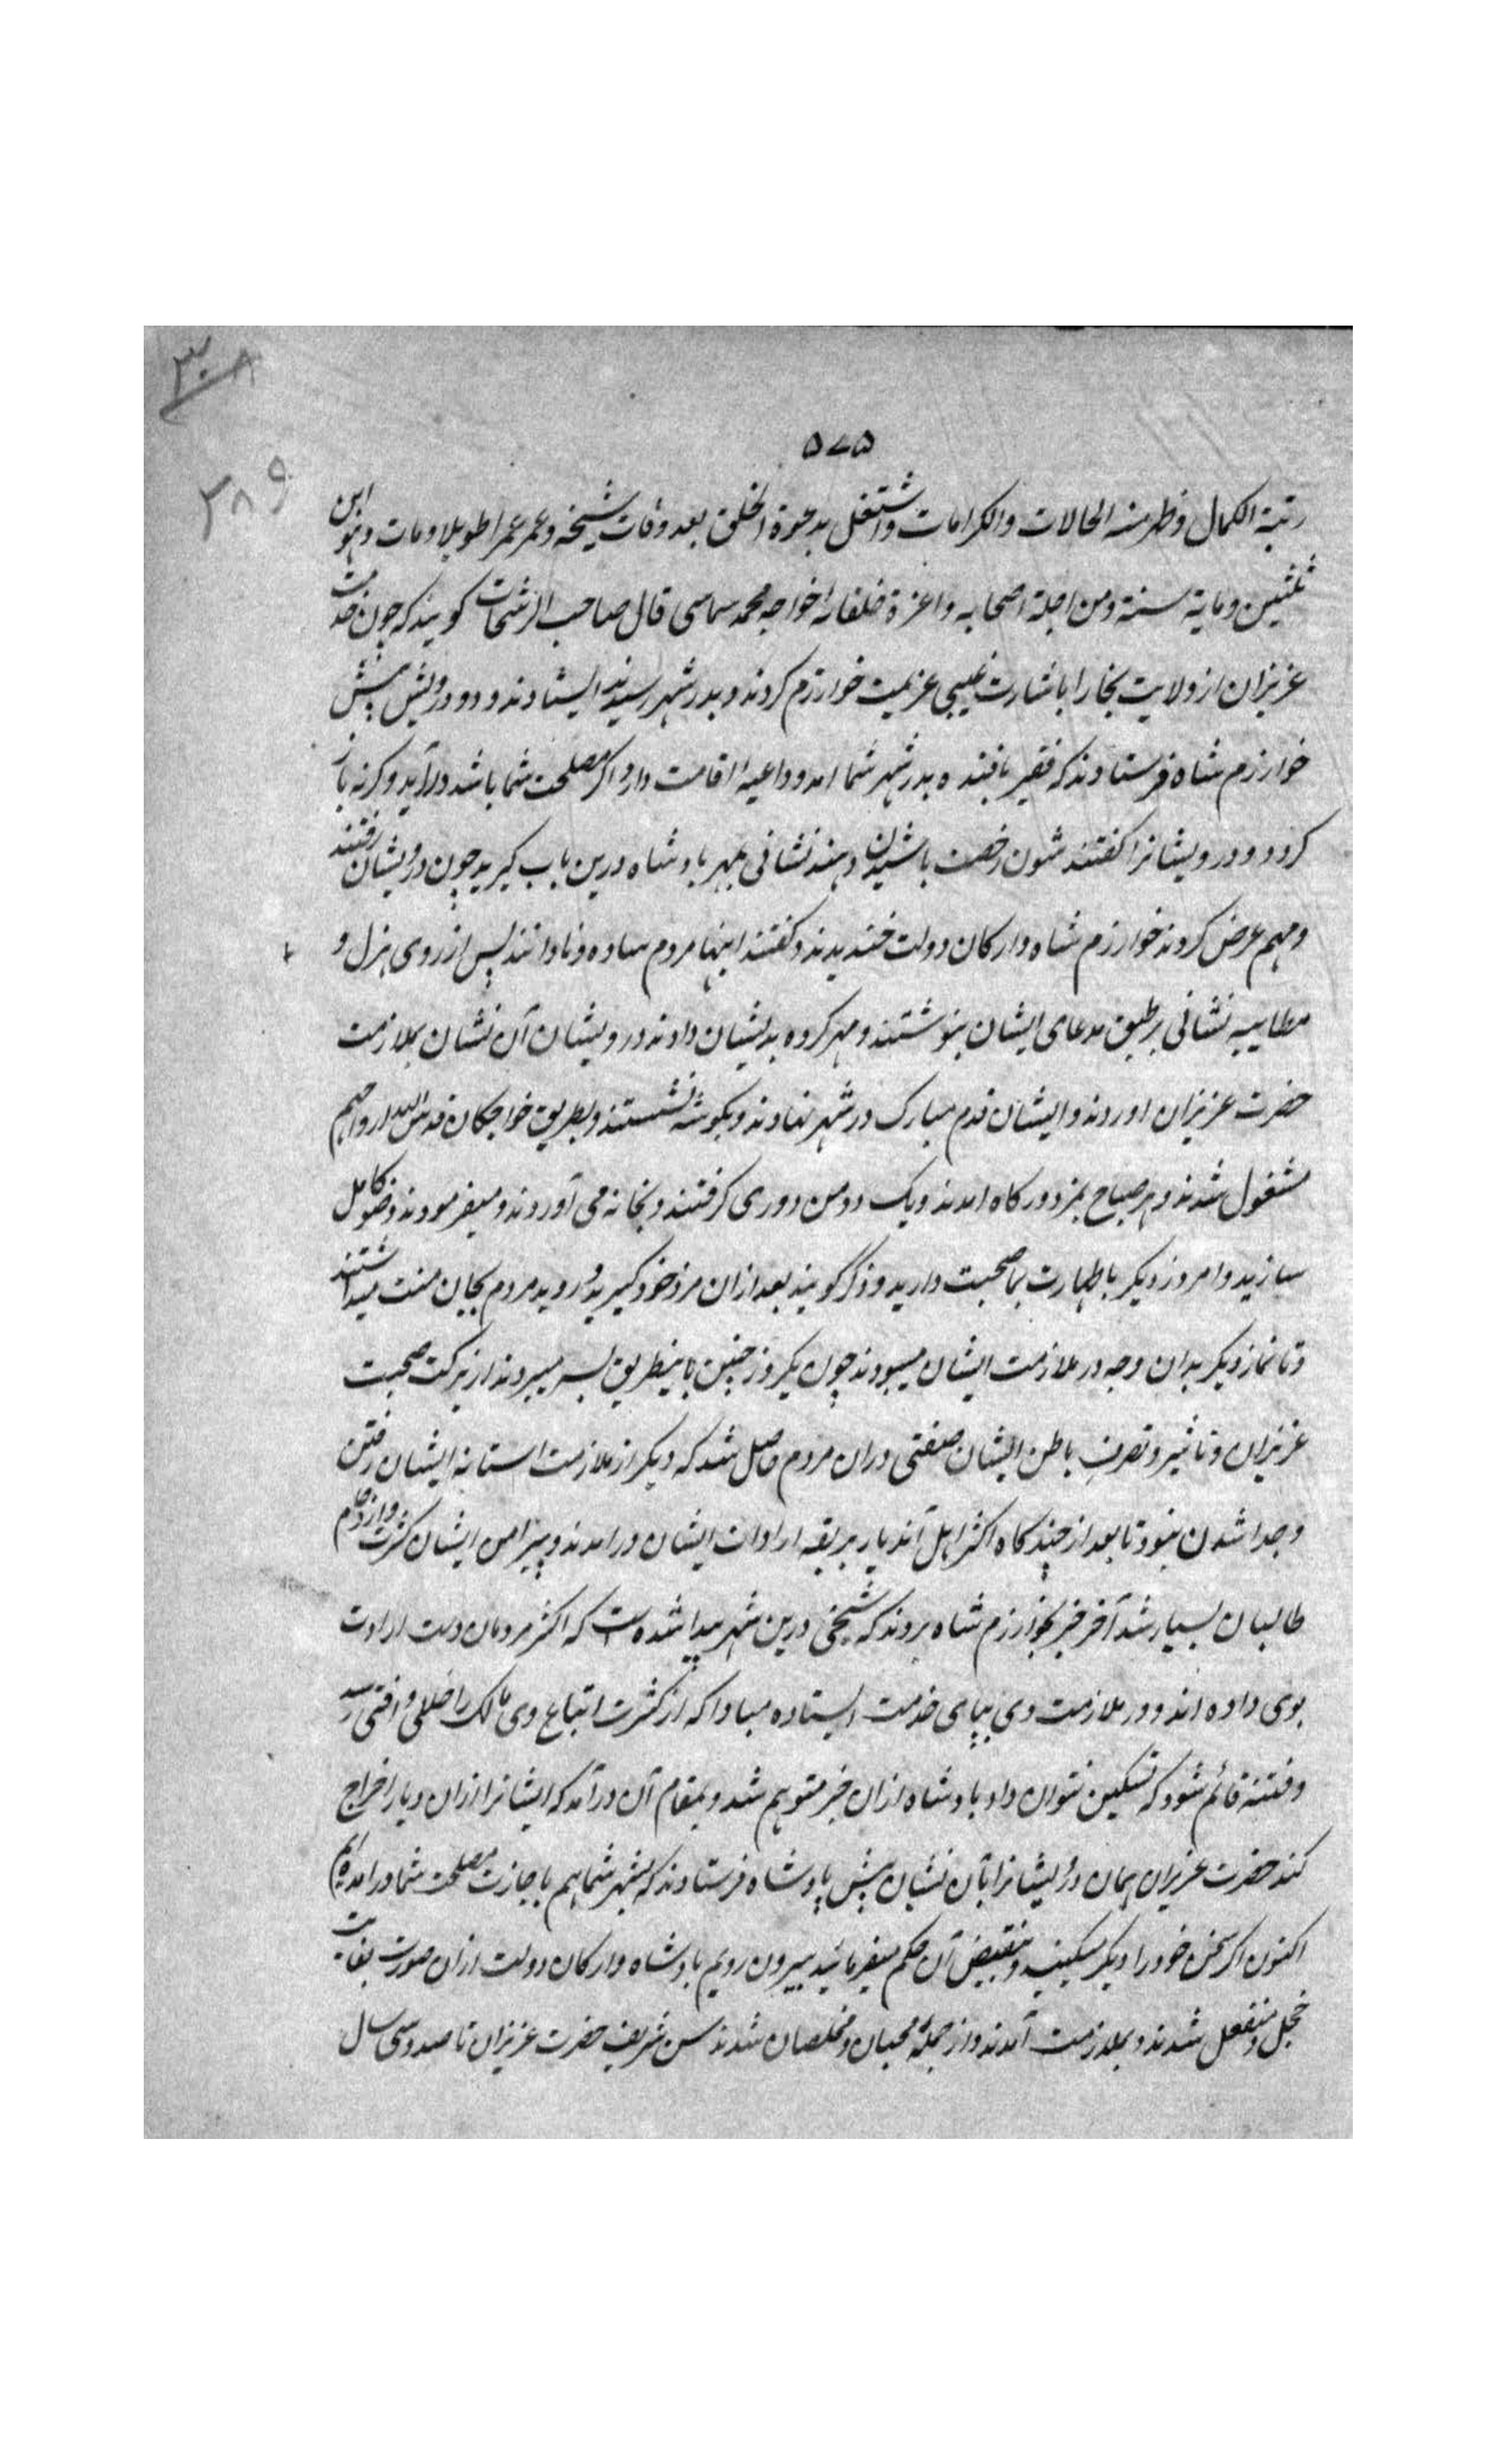 ۳۰۸
۵۷۵
۲۸۹
رتبة الکمال وظهر منه الحالات والکرامات واشتغل بدعوة الخلق بعد وفات شیخه وعمر عمرا طویلا ومات وهو ابن
ثلثین ومایة سنة ومن اجلة اصحابه واعزة خلفائه خواجه محمد سماسی قال صاحب الرشحات کویند که چون خدمت
عزیزان از ولایت بخارا باشارت غیبی عزیمت خوارزم کردند وبدر شهر رسیدند ایستادند ودو درویش پیش
خوارزم شاه فرستادند که فقیر بافنده بدر شهر شما امده وداعیه اقامت دارد اکر مصلحت شما باشد درآید وکرنه باز
کردد ودرویشانرا کفتند چون رخصت باشیدن دهند نشانی بمهر بادشاه درین باب کیرید چون درویشان رفتند
ومهم عرض کردند خوارزم شاه وارکان دولت خندیدند وکفتند اینها مردم ساده ونادانند پس از روی هزل و
مطایبه نشانی برطبق مدعای ایشان بنوشتند ومهر کرده بدیشان دادند درویشان آن نشان بملازمت
حضرت عزیزان اوردند وایشان قدم مبارک در شهر نهادند وبکوشه نشستند وبطریق خواجکان قدس الله ارواحهم
مشغول شدند وهر صباح بمزدورکاه امدند ویک دو مزدوری کرفتند وبخانه می آوردند ومیفرمودند وضو کامل
سازید وامروز دیکر باطهارت بما صحبت دارید وذکر کویند بعد ازان مزد خود کیرید وروید مردم بجان منت میداشتند
وتا نماز دیکر بدان وجه در ملازمت ایشان میبودند چون یکروز چنین باینطریق بسر میبردند از برکت صحبت
عزیزان وتاثیر وتصرف باطن ایشان صفتی دران مردم حاصل شد که دیکر از ملازمت استانه ایشان رفتن
وجدا شدن نبود تا بعد از چندکاه اکثر اهل آندیار بربقه ارادت ایشان درامدند وپیرامن ایشان کثرت وازدحام
طالبان بسیار شد آخر خبر بخوارزم شاه بردند که شیخی درین شهر پیدا شده است که اکثر مردمان دست ارادت
بوی داده اند ودر ملازمت وی بپای خدمت ایستاده مبادا که از کثرت اتباع وی مالک را خللی وافتی رسد
وفتنه قائم شود که تسکین نتوان داد بادشاه ازان خبر متوهم شد وبمقام آن درآمد که ایشانرا ازان دیار اخراج
کند حضرت عزیزان همان درویشانرا بآن نشان پیش پادشاه فرستادند که بشهر شما هم باجازت مصلحت شما درامده ایم
اکنون اکر سخن خود را دیکر میکنید ونقیض آن حکم میفرمائید بیرون رویم بادشاه وارکان دولت ازان صورت بغایت
خجل ومنفعل شدند وبملازمت آمدند واز جملهٔ محبان ومخلصان شدند سن شریف حضرت عزیزان تا صدوسی سال